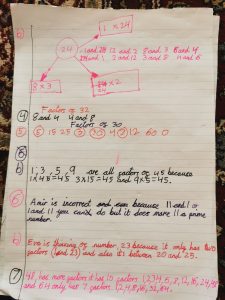 b)
1 x 24
24
1 and 24 12 and 2 8 and 3 6 and 4
24 and 1 2 and 12 3 and 8 4 and 6
8 x 3
x 2
④ Factors of 32
8 and 4 4 and 8
Factors of 30
⑤ 15 25 12 60 0
⑤
b) 1, 3, 5, 9 are all factors of 45 because
1 x 45 = 45 3 x 15 = 45 and 9 x 5 = 45.
⑥ Amir is incorrect and even because 11 and 1 or
1 and 11 you could do but it does make 11 a prime
number.
b) Eva is thinking of number 23 because it only has two
factors (1 and 23) and also it's between 20 and 25.
⑦ 48 has more factors it has 10 factors
and 64 only has 7 factors.